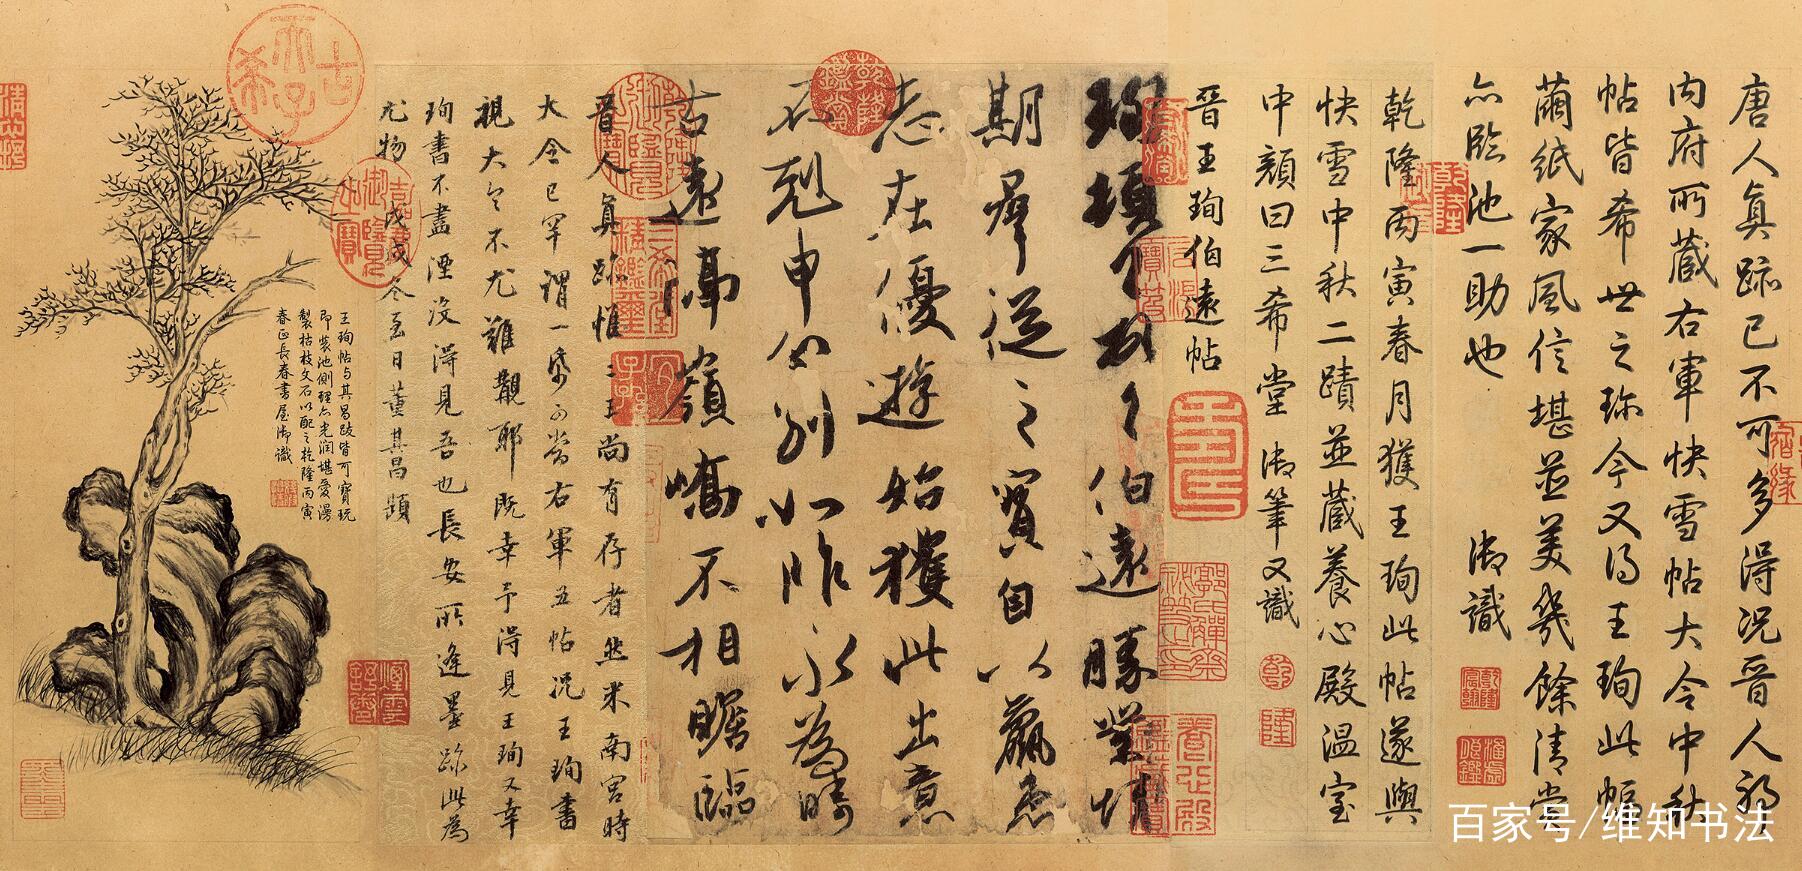 唐人真跡已不可多得況晉人耶
内府所藏右軍快雪帖大令中秋
帖皆希世之珎今又得王珣此幅
繭紙家風信堪並美幾餘清賞
亦臨池一助也 御識
乾隆丙寅春月獲王珣此帖遂與
快雪中秋二蹟並藏養心殿溫室
中顏曰三希堂 御筆又識
乾
隆
晉王珣伯遠帖
郭氏觶齋秘笈之印
養心殿鑑藏寶
珣頓首〻〻伯遠勝業情
期羣從之寶自以羸患
志在優遊始獲此出意
不剋申分別如昨永為疇
古遠隔嶺嶠不相瞻臨
乾隆鑑賞
乾隆御覽之寶
三希堂精鑑璽
宜子孫
晉人真跡惟二王尚有存者然米南宮時
大令已罕謂一紙可當右軍五帖況王珣書
視大令不尤難覯耶既幸予得見王珣又幸
珣書不盡湮沒得見吾也長安所逢墨跡此為
尤物 戊戌冬至日董其昌題
嘉慶御覽之寶
煙雲舒卷
古希天子
王珣帖与其昌跋皆可寶玩
即裝池側理亦光潤堪愛漫
製枯枝文石以配之乾隆丙寅
春正長春書屋御識
百家号/维知书法